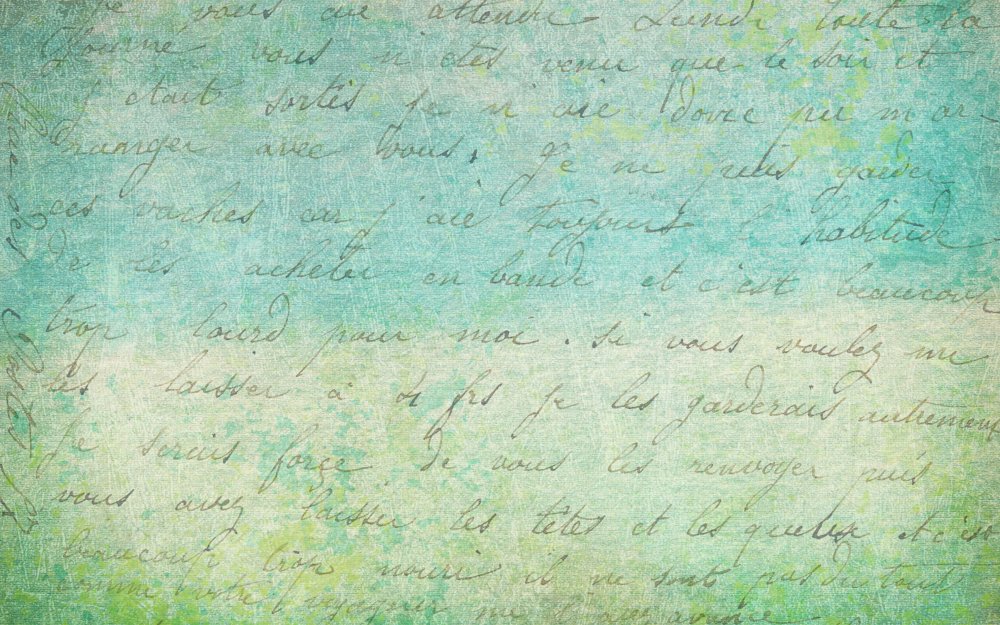 Je vous aie attendu Lundi toute la
Journé vous n'etes venu que le soir et
j'etait sortés je n'aie donc pu m'ar-
ranger avec vous. Je ne puis garder
ces vaches car j'aie toujours l'habitude
de les acheter en bande et c'est beaucoup
trop lourd pour moi. si vous voulez me
les laisser à 4 frs je les garderais autrement
je serais forçe de vous les renvoyer puis
vous avez laisser les têtes et les queux et c'est
beaucoup trop nouri il ne sont pas du tout
comme votre me l'aux avance